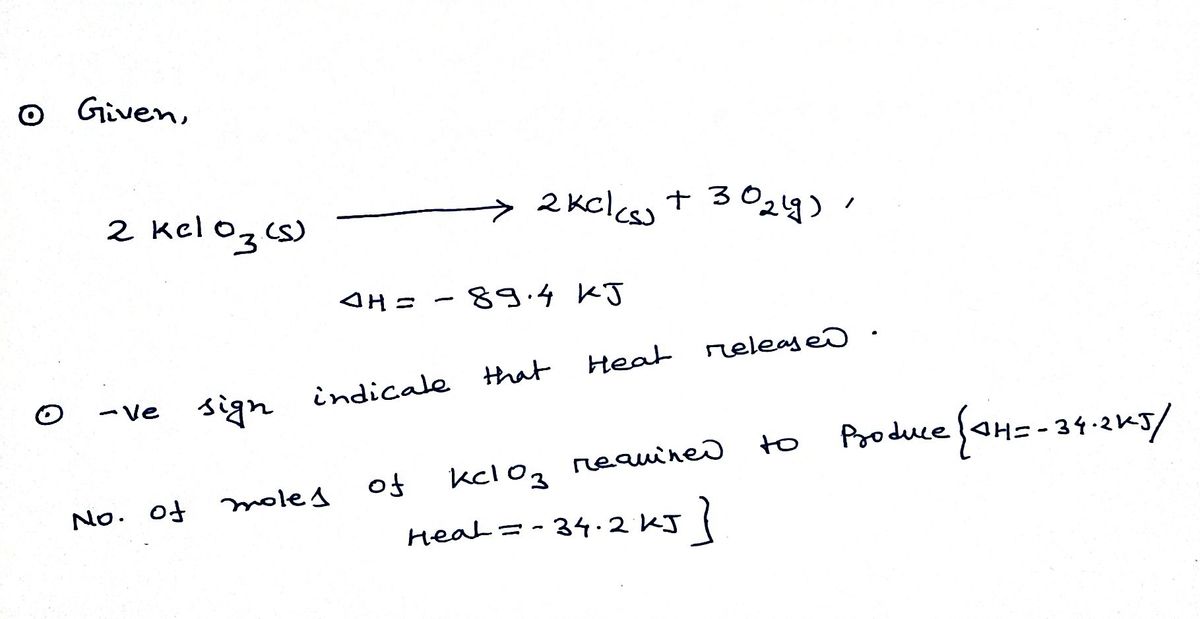 ⊙ Given,
2 KClO3(s) ⟶ 2KCl(s) + 3O2(g) ,
ΔH = - 89.4 KJ
⊙ -ve sign indicate that Heat released .
No. of moles of KClO3 required to Produce {ΔH=-34.2KJ/
Heat = - 34.2 KJ}